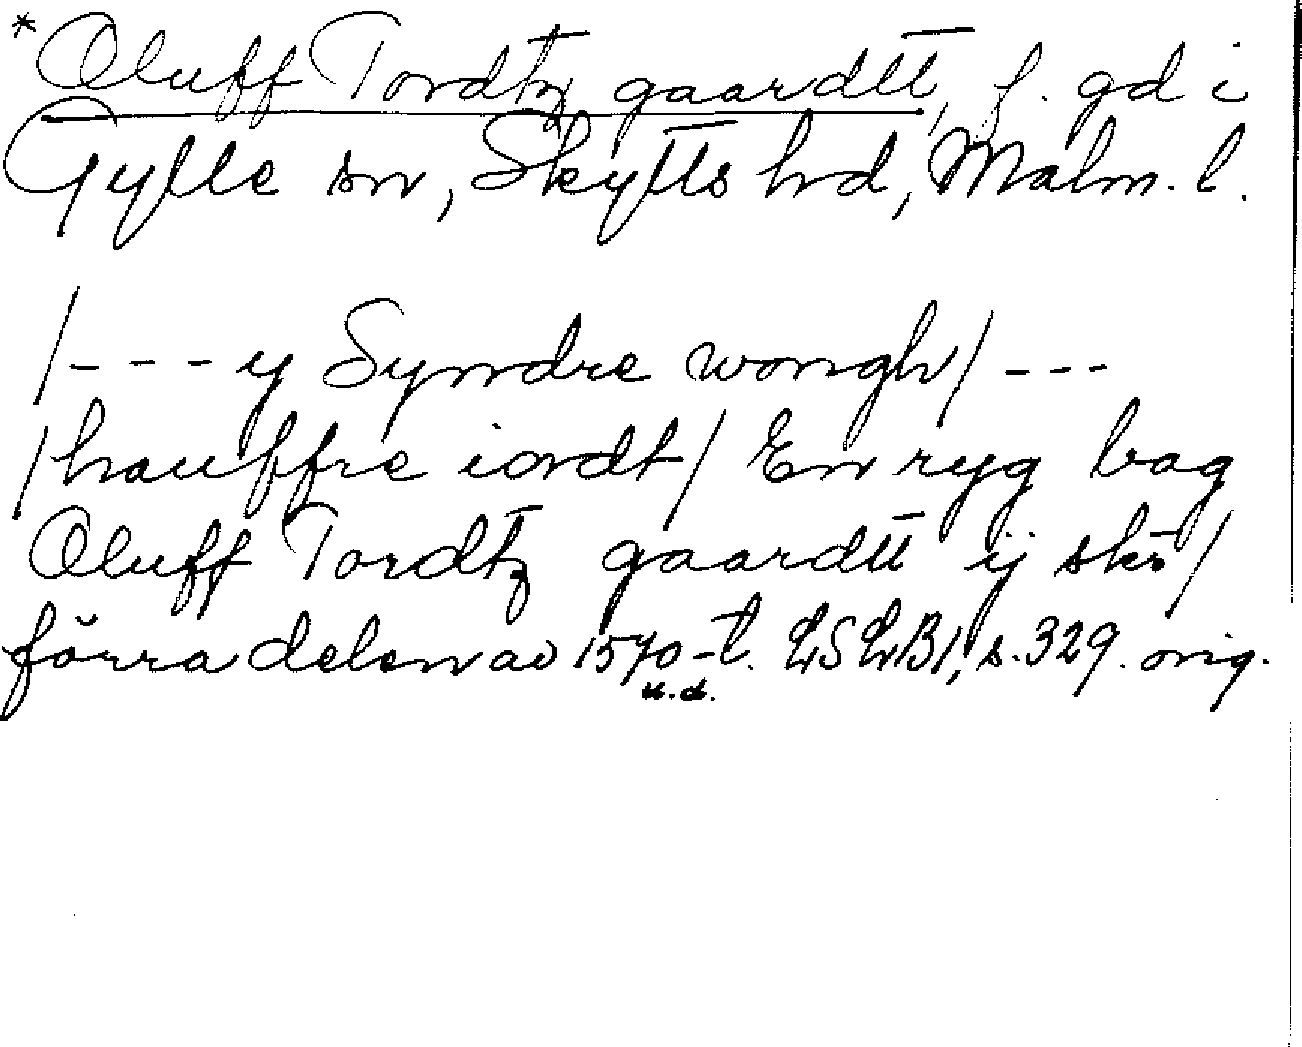 *Oluff Tordtz gaardtt, f. gd i
Gylle sn, Skytts hd, Malm. l.
/- - - y Syndre wongh/ - - -
/hauffre iordt/ En ryg bag
Oluff Tordtz gaardtt ij sk̄r/
förra delen av 1570-t. LSLB1, s. 329. orig.
u.d.